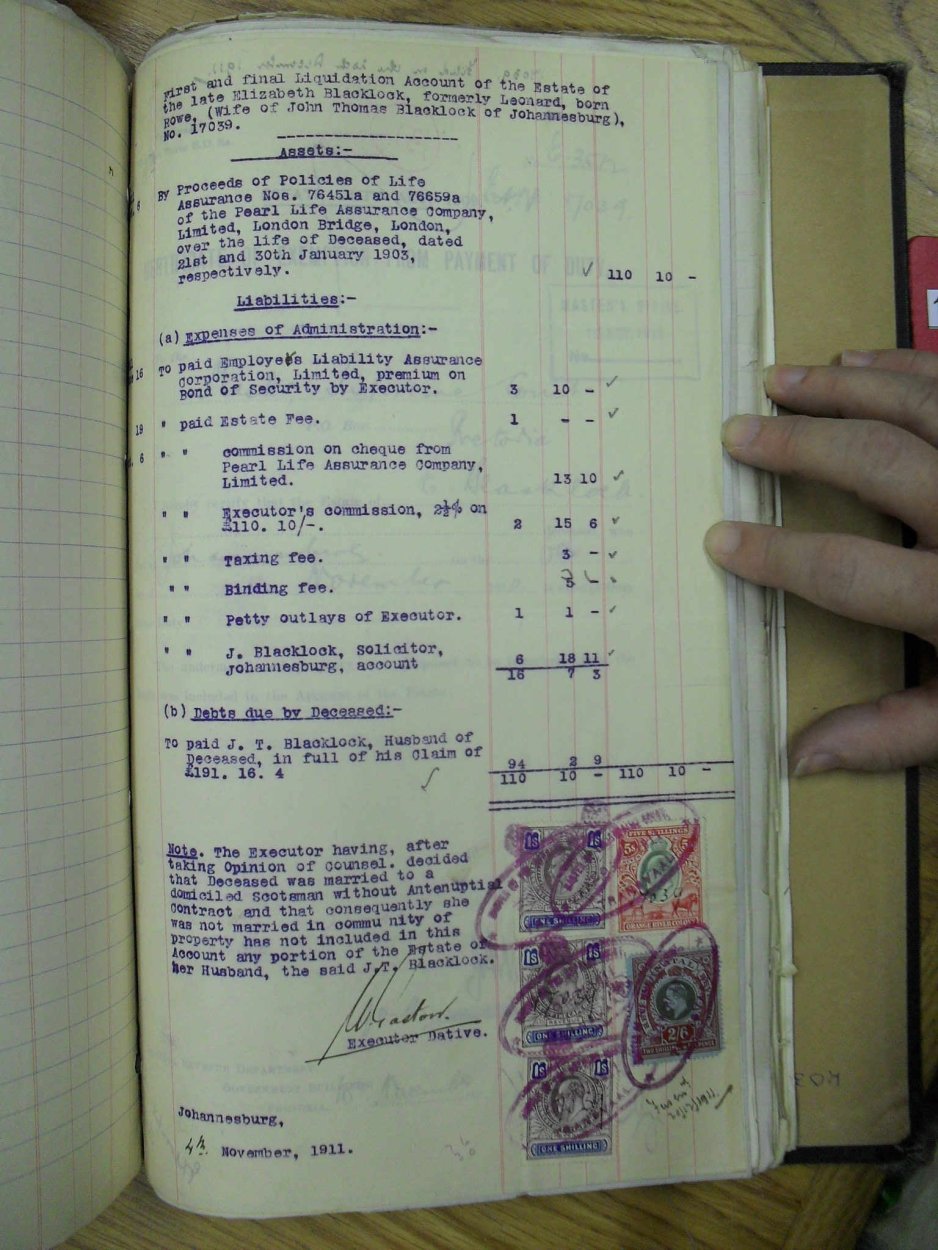 First and final Liquidation Account of the Estate of
the late Elizabeth Blacklock, formerly Leonard, born
Rowe, (Wife of John Thomas Blacklock of Johannesburg),
No. 17039.
Assets:-
By Proceeds of Policies of Life
Assurance Nos. 76451a and 76659a
of the Pearl Life Assurance Company,
Limited, London Bridge, London,
over the life of Deceased, dated
21st and 30th January 1903,
respectively. 110 10 -
Liabilities:-
(a) Expenses of Administration:-
16 To paid Employers Liability Assurance
Corporation, Limited, premium on
Bond of Security by Executor. 3 10 -
19 " paid Estate Fee. 1 - -
6 " " commission on cheque from
Pearl Life Assurance Company,
Limited. 13 10
" " Executor's commission, 2½% on
£110. 10/-. 2 15 6
" " Taxing fee. 3 -
" " Binding fee. -
" " Petty outlays of Executor. 1 1 -
" " J. Blacklock, Solicitor,
Johannesburg, account 6 18 11
16 7 3
(b) Debts due by Deceased:-
To paid J. T. Blacklock, Husband of
Deceased, in full of his Claim of
£191. 16. 4 94 2 9
110 10 - 110 10 -
Note. The Executor having, after
taking Opinion of counsel. decided
that Deceased was married to a
domiciled Scotsman without Antenuptial
contract and that consequently she
was not married in commu nity of
property has not included in this
Account any portion of the Estate of
Her Husband, the said J.T. Blacklock.
Executor Dative.
Johannesburg,
4th November, 1911.
1s 1s
ONE SHILLING
FIVE SHILLINGS
5s 5s
ORANGE RIVER COLONY
1s 1s
ONE SHILLING
2/6
1s 1s
ONE SHILLING